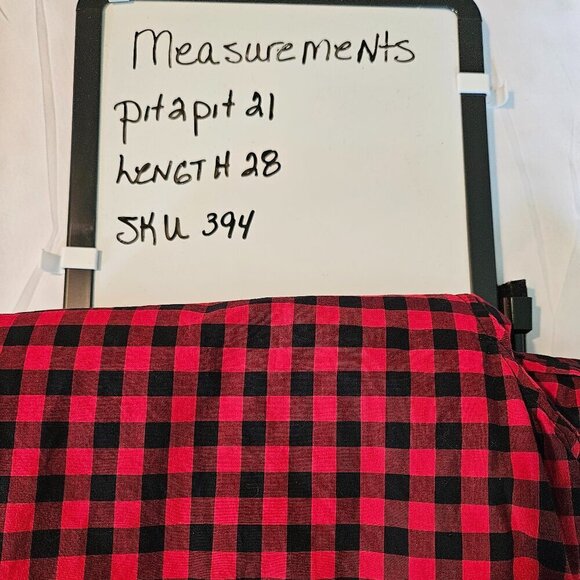 Measurements
pit2pit 21
LENGTH 28
SKU 394